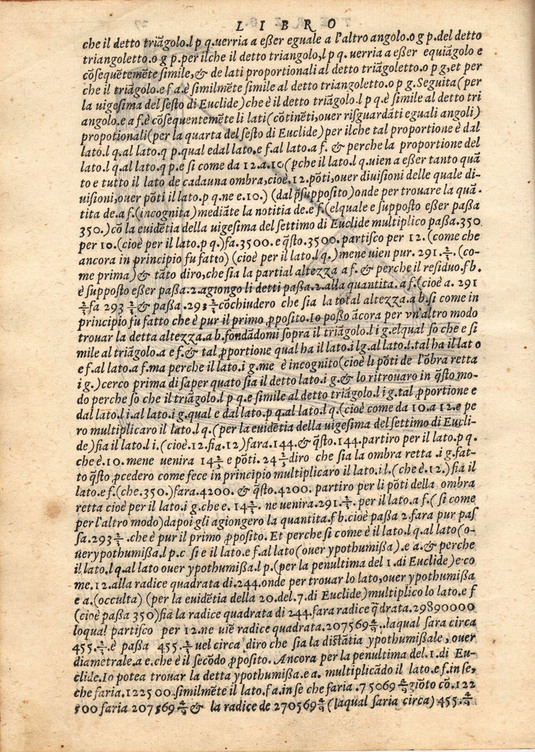 LIBRO
che il detto triãgolo.l p q.uerria a eßer eguale a l'altro angolo.o g p.del detto
triangoletto.o g p.per ilche il detto triangolo,l p q. uerria a eßer equiãgolo e
cõsequẽtemẽte simile,& de lati proportionali al detto triãgoletto.o p g,et per
che il triãgolo.e f a.è similmẽte simile al detto triangoletto.o p g.Seguita (per
la uigesima del sesto di Euclide) che è il detto triãgolo.l p q.è simile al detto tri
angolo.e a f.è cõsequẽtemẽte li lati (cõtinẽti,ouer risguardãti eguali angoli)
propotionali (per la quarta del sesto di Euclide) per ilche tal proportione è dal
lato.l q.al lato.q p.qual è dal lato.e f.al lato.a f. & perche la proportione del
lato.l q.al lato.q p.e si come da 12.a.10 (pche il lato.l q.uien a eßer tanto quã
to e tutto il lato de cadauna ombra,cioè.12.põti,ouer diuisioni delle quale di-
uisioni,ouer põti il lato p q.ne e.10.) (dal p̃supposito) onde per trouare la quã
tita de.a f.(incognita) mediãte la notitia de.e f.(elquale e supposto eßer paßa
350.) cõ la euidẽtia della uigesima del settimo di Euclide multiplico paßa.350
per 10.(cioè per il lato.p q.) fa.3500. e q̃sto.3500. partisco per 12. (come che
ancora in principio fu fatto) (cioè per il lato,l q.) mene uien pur. 291.⅔. (co-
me prima) & tãto diro,che sia la partial altezza a f. & perche il residuo.f b.
è supposto eßer paßa 2.agiongo li detti paßa.2.alla quantita.a f.(cioè a. 291
⅔ fa 293 ⅔ & paßa .293 ⅔ cõchiudero che sia la total altezza.a b.si come in
principio fu fatto che è pur il primo ꝓposito.Io poßo ãcora per vn'altro modo
trouar la detta altezza.a b.fondãdomi sopra il triãgolo.l i g.elqual so che e si
mile al triãgolo.a e f.& tal ꝓportione qual ha il lato.i g.al lato.l.tal ha il lat o
e f.al lato.a f.ma perche il lato.i g.me è incognito (cioè li põti de l'õbra retta
i g.) cerco prima di saper quato sia il detto lato.i g.& lo ritrouaro in q̃sto mo-
do perche so che il triãgolo.l p q.e simile al detto triãgolo.l i g.tal ꝓportione e
dal lato.l i.al lato.i g.qual e dal lato.p q.al lato.l q.(cioè come da 10.a 12.e pe
ro multiplicaro il lato.l q.(per la euidẽtia della uigesima del settimo di Eucli-
de) fia il lato.l i.(cioè.12.fia.12) fara.144.& q̃sto.144.partiro per il lato.p q.
che è.10.mene uenira 14 ⅖ e põti. 24 ⅔ diro che sia la ombra retta .i g.fat-
to q̃sto ꝓcedero come fece in principio multiplicaro il lato.i l.(che è.12.) fia il
lato.e f.(che.350.) fara.4200. & q̃sto.4200. partiro per li põti della ombra
retta cioè per il lato.i g.che e. 14 ⅖. ne uenira.291.⅔. per il lato.a f.(si come
per l'altro modo) dapoi gli agiongero la quantita.f b.cioè paßa 2.fara pur paß
sa.293 ⅔ .che è pur il primo ꝓposito. Et perche si come è il lato.l q.al lato (o-
uer ypothumißa.l p.c si e il lato.e f.al lato (ouer ypothumißa).e a.& perche
il lato.l q.al lato ouer ypothumißa.l p.(per la penultima del 1.di Euclide) e co-
me.12.alla radice quadrata di 244.onde per trouar lo lato,ouer ypothumißa
e a.(occulta) (per la euidẽtia della 20.del.7.di Euclide) multiplico lo lato.e f
(cioè paßa 350) fia la radice quadrata di 244.fara radice q̃drata.29890000
loqual partisco per 12.ne uiẽ radice quadrata.207569 ⁴⁄₉.laqual sara circa
455.⅗.e paßa 455.⅗ uel circa diro che sia la distãtia ypothumißale , ouer
diametrale.a e.che è il secõdo ꝓposito. Ancora per la penultima del.1.di Eu-
clide.Io potea trouar la detta ypothumißa.e a. multiplicãdo il lato.e f.in se,
che faria.122500.similmẽte il lato.f a.in se che faria .75069 ⁴⁄₉ giõto cõ.122
500 faria 207569 ⁴⁄₉ & la radice de 270569 ⁴⁄₉ (laqual saria circa) 455.⅗